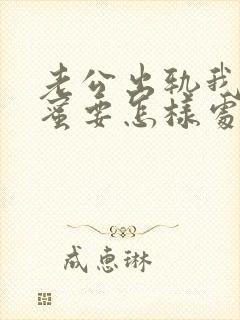 老公出轨我
蜜要怎样处
成惠琳